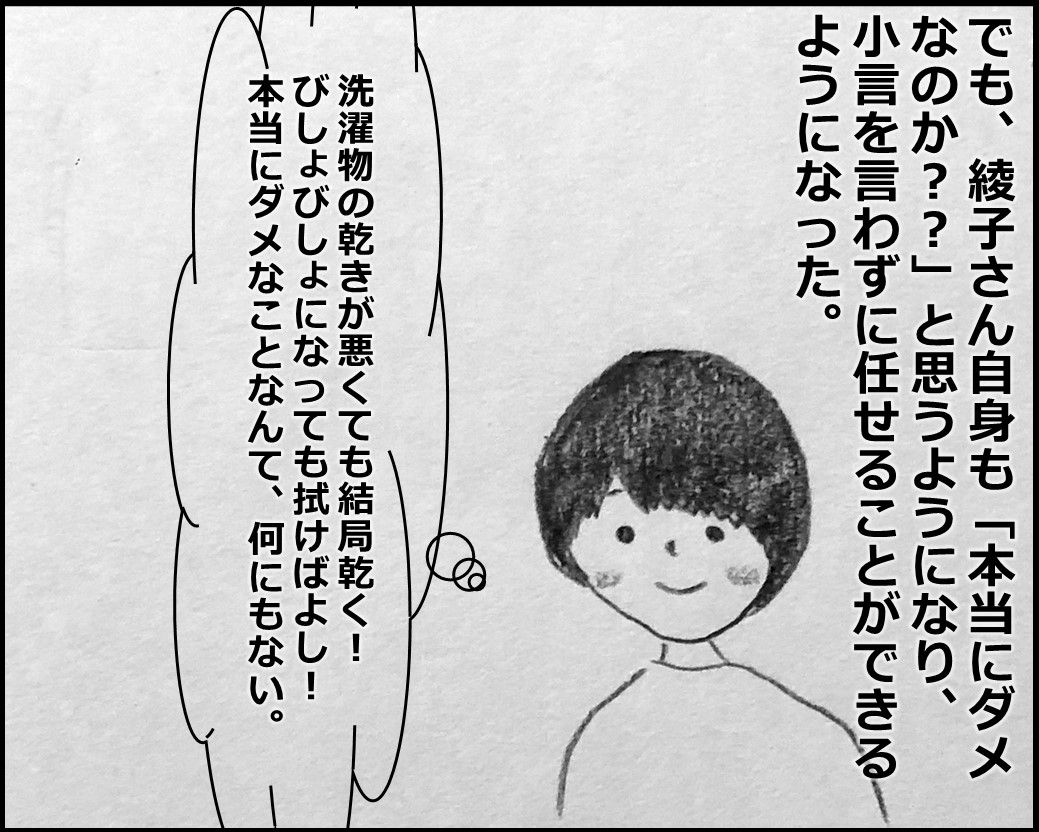 でも、綾子さん自身も「本当にダメ
なのか？？」と思うようになり、
小言を言わずに任せることができる
ようになった。
洗濯物の乾きが悪くても結局乾く！
びしょびしょになっても拭けばよし！
本当にダメなことなんて、何にもない。